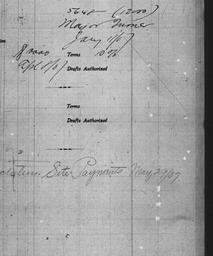 5648 (12000)
Major Turner
Jany 1/07
$ 3000 Terms 10 %
Apl 8/07
Drafts Authorized
Terms
Drafts Authorized
Site Payments May 29/07